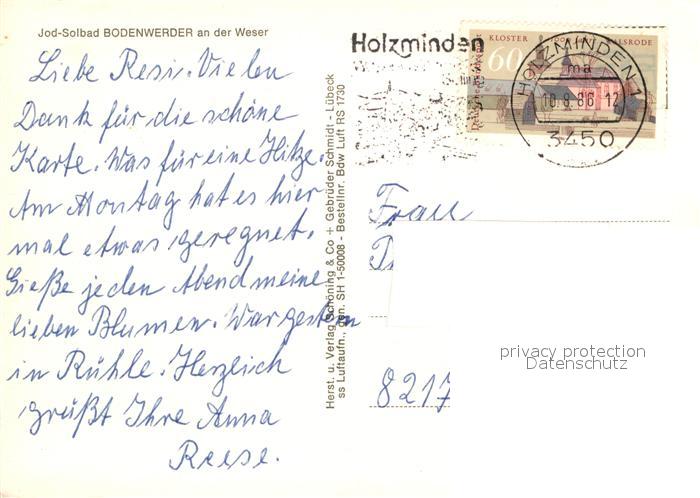 Jod-Solbad BODENWERDER an der Weser
Liebe Resi. Vielen
Dank für die schöne
Karte. Was für eine Hitze.
Am Montag hat es hier
mal etwas geregnet.
Gieße jeden Abend meine
lieben Blumen. War gestern
in Rühle. Herzlich
grüßt Ihre Anna
Reese.
Herst. u. Verlag Schöning & Co + Gebrüder Schmidt - Lübeck
ss Luftaufn., gen. SH 1-50008 - Bestellnr. Bdw Luft RS 1730
Holzminden
KLOSTER WALSRODE
60
HOLZMINDEN 1
ma
10.8.86.12
3450
Frau
8217
privacy protection
Datenschutz